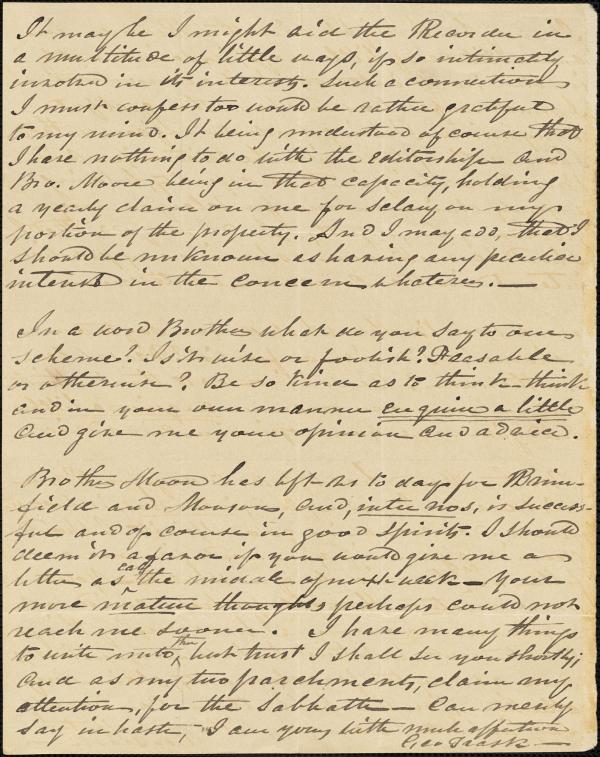 It may be I might aid the Recorder in
a multitude of little ways, if so intimately
involved in its interests. Such a connection
I must confess too would be rather grateful
to my mind. It being understood of course that
I have nothing to do with the editorship and
Bro. Moore being in that capacity, holding
a yearly claim on me for salary on my
portion of the property. And I may add, that I
should be unknown as having any peculiar
interest in the concern whatever. —
In a word Brother what do you say to our
scheme? Is it wise or foolish? Feasable
or otherwise? Be so kind as to think-think
and in your own manner enquire a little
and give me your opinion and advice.
Brother Moore has left us to day for Brim-
field and Monson, and, inter nos, is success-
ful and of course in good spirits. I should
deem it a favor if you would give me a
letter as early the middle of next week — Your
more mature thoughts perhaps could not
reach me sooner. I have many things
to write unto thee, but trust I shall see you shortly;
and as my two parchments, claim my
attention, for the Sabbath — can merely
say in haste, I am yours with much affection
Geo Trask —